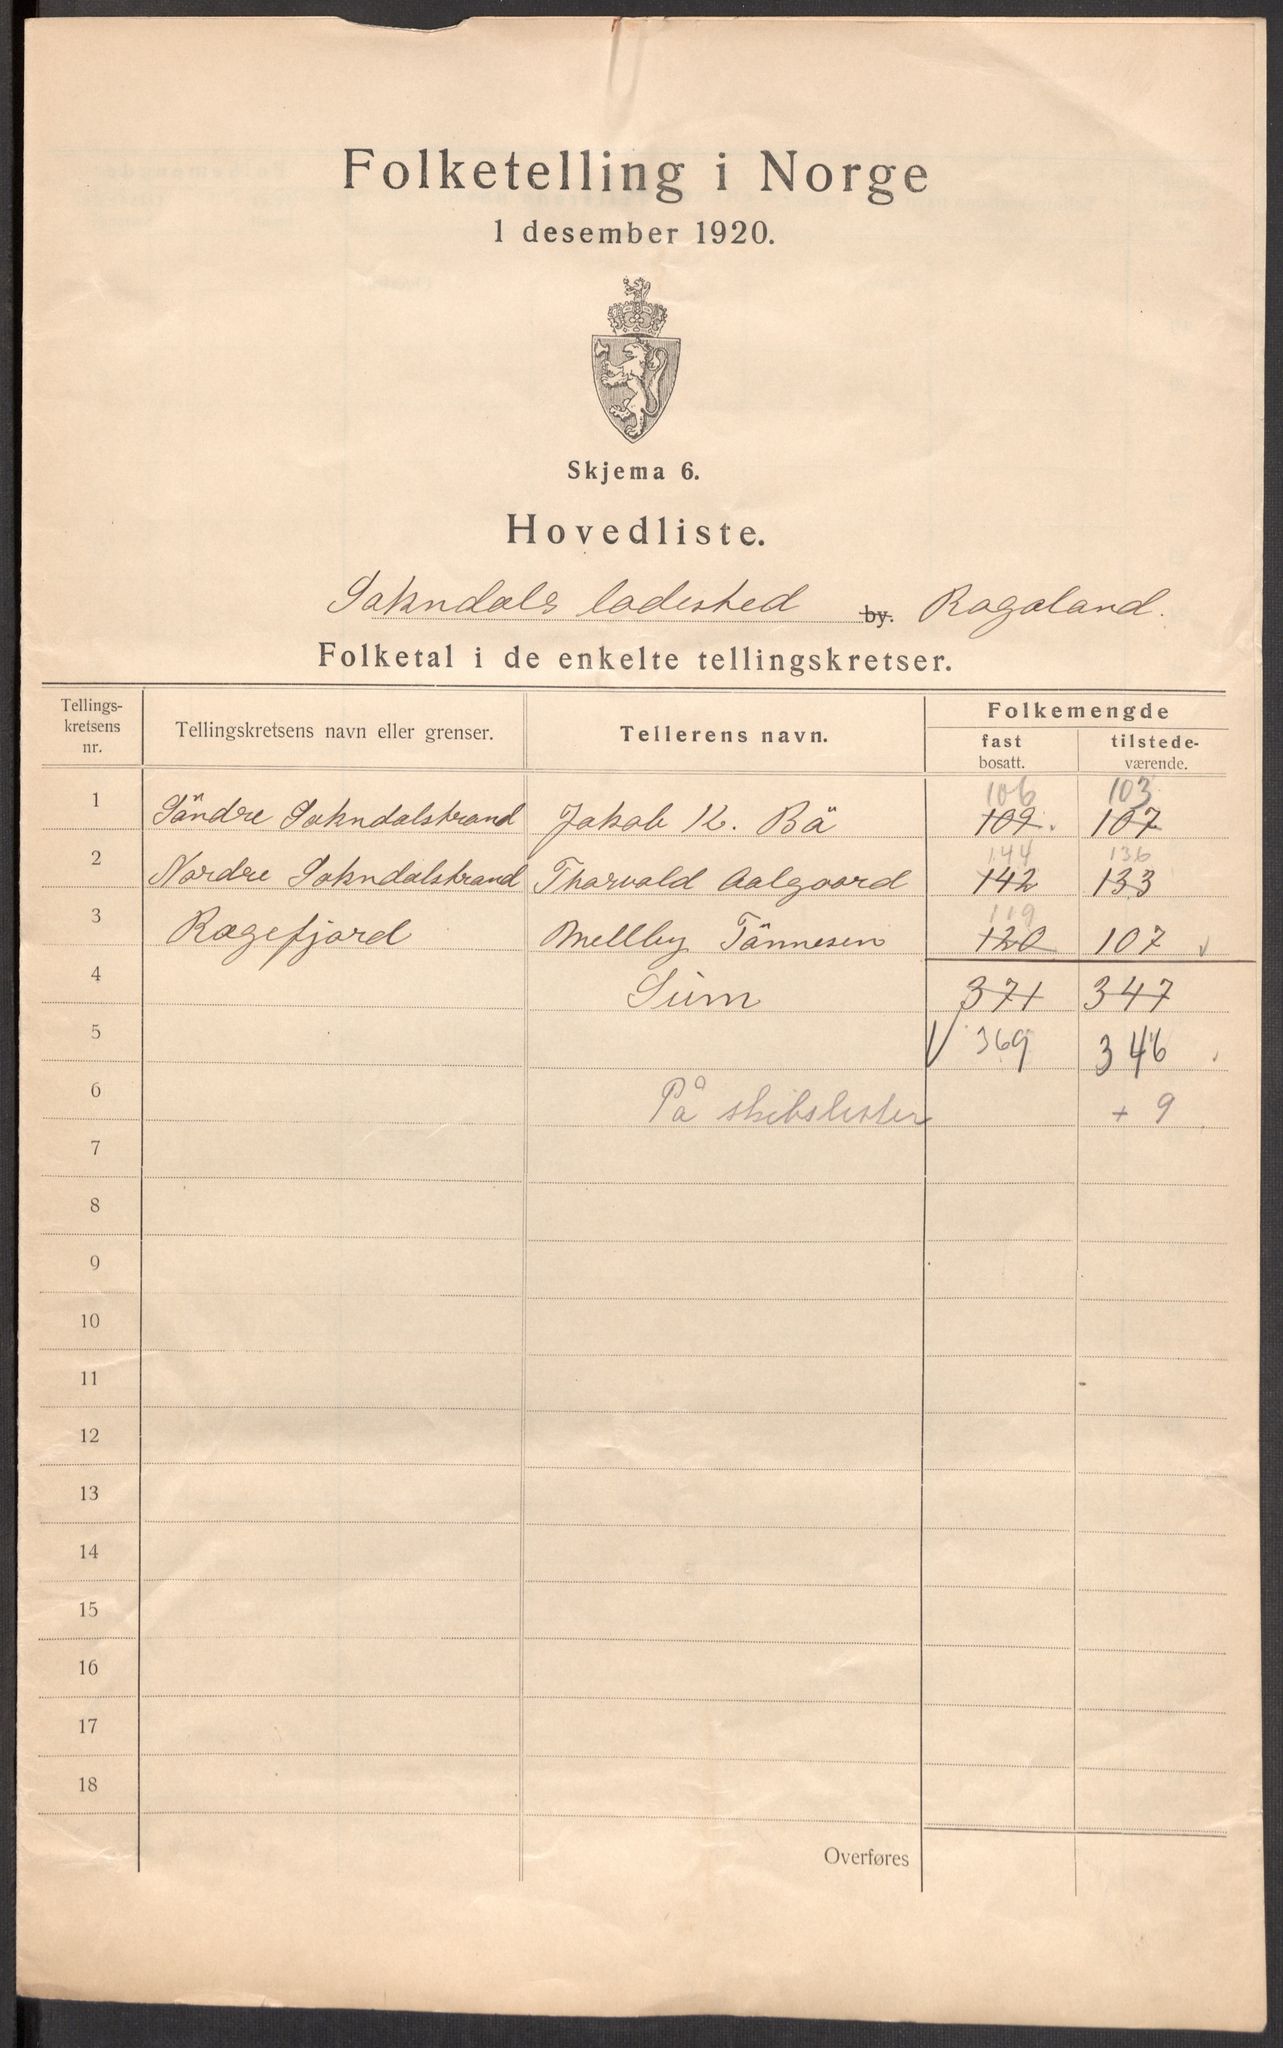 Folketelling i Norge
1 desember 1920.
Skjema 6.
Hovedliste.
Sokndals ladested by. Rogaland.
Folketal i de enkelte tellingskretser.
Tellings-kretsens nr. Tellingskretsens navn eller grenser. Tellerens navn. Folkemengde
fast bosatt. tilstede-værende.
106 103
1 Söndre Sokndalstrand Jakob K. Bö 109 107
144 136
2 Nordre Sokndalstrand Thorvald Aalgaard 142 133
119
3 Rægefjord Mellby Tönnesen 120 107
4 Sum 371 347
5 369 346
6 På skibslister + 9
7
8
9
10
11
12
13
14
15
16
17
18
Overføres